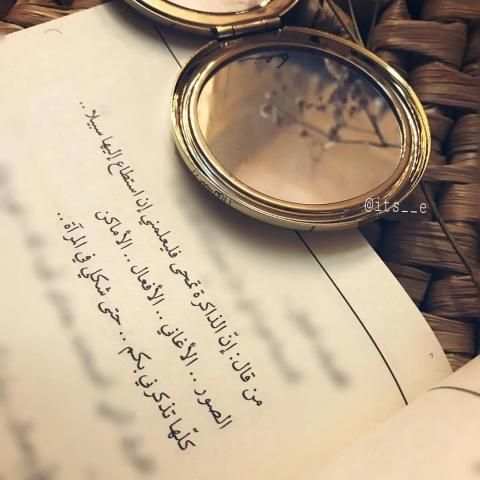 من قال: إنّ الذاكرة تمحى فليعلمني إن استطاع إليها سبيلا ..
الصور .. الأغاني .. الأفعال .. الأماكن
كلّها تذكرني بكم .. حتى شكلي في المرآة ..
@its__e